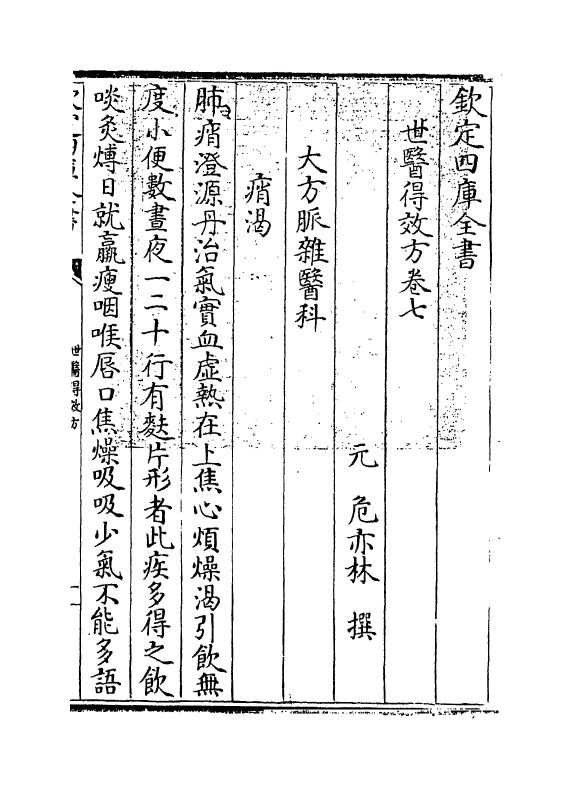 欽定四庫全書
世醫得效方卷七
元 危亦林 撰
大方脈雜醫科
痟渴
肺痟澄源丹治氣實血虛熱在上焦心煩燥渴引飲無
度小便數晝夜一二十行有麩片形者此疾多得之飲
啖灸煿日就羸瘦咽喉唇口焦燥吸吸少氣不能多語
世醫得效方
一